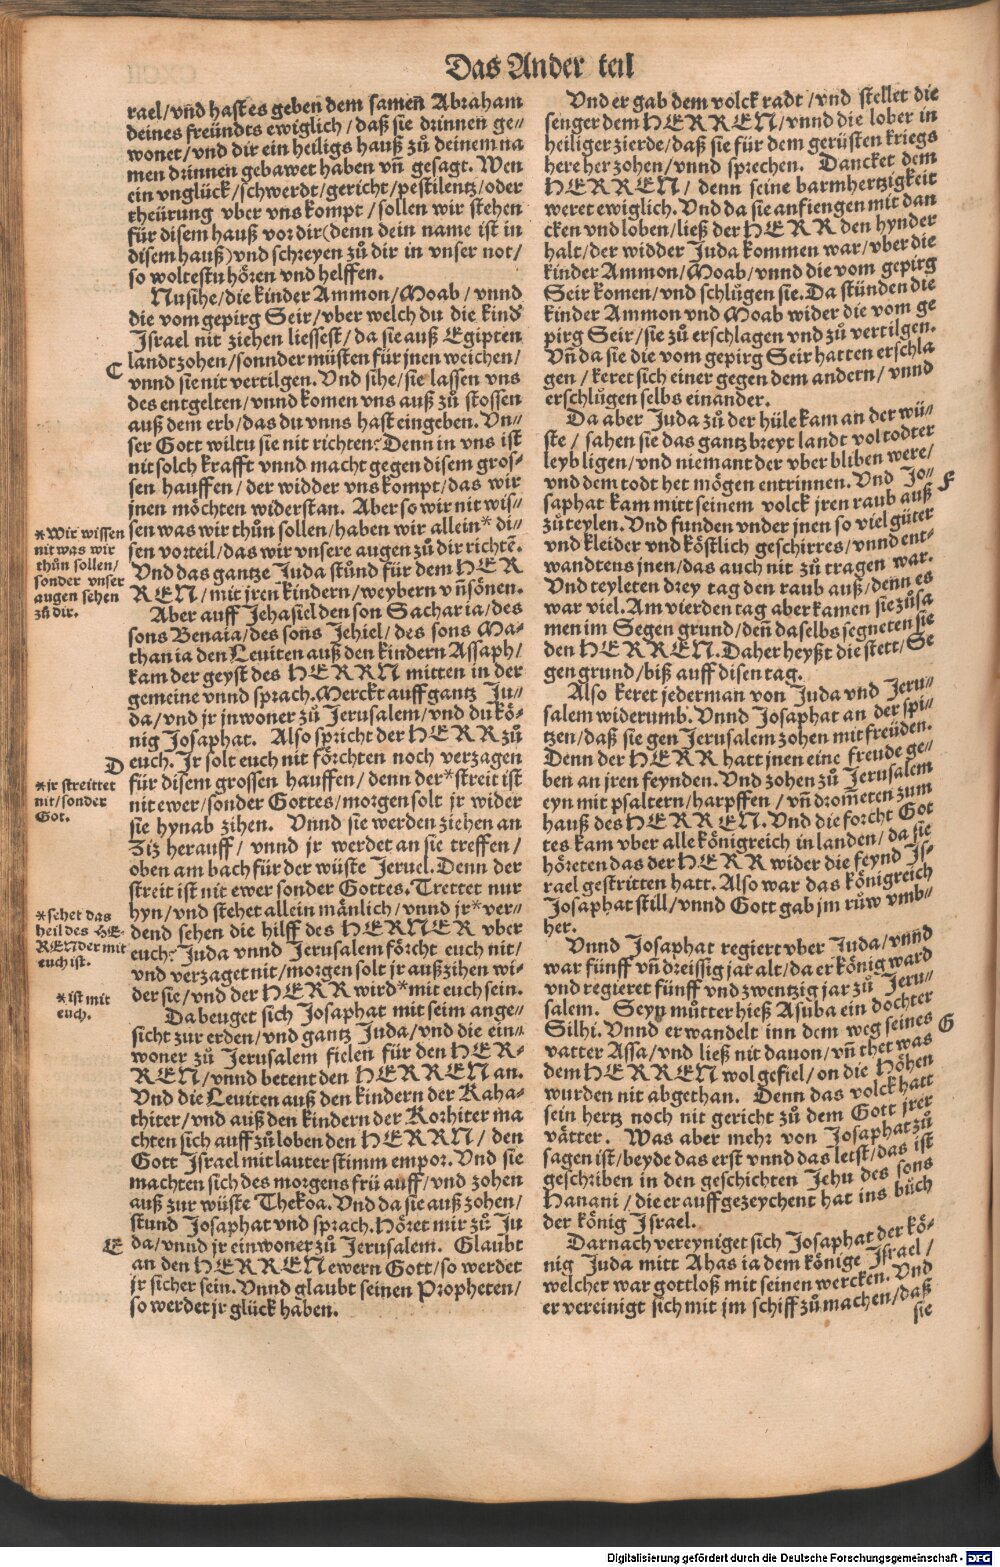 Das Ander teil
rael/vnd hast es geben dem samen Abraham
deines freündts ewiglich/daß sie drinnen ge⸗
wonet/vnd dir ein heiligs hauß zů deinem na
men drinnen gebawet haben vñ gesagt. Wen
ein vnglück/schwerdt/gericht/pestilentz/oder
theürung vber vns kompt/sollen wir stehen
für disem hauß vor dir(denn dein name ist in
disem hauß)vnd schreyen zů dir in vnser not/
so woltestu hören vnd helffen.
Nu sihe/die kinder Ammon/Moab/vnnd
die vom gepirg Seir/vber welch du die kind
Israel nit ziehen liessest/da sie auß Egipten
C
landt zohen/sonnder müsten für jnen weichen/
vnnd sie nit vertilgen. Vnd sihe/sie lassen vns
des entgelten/vnnd komen vns auß zů stossen
auß dem erb/das du vnns hast eingeben. Vn⸗
ser Gott wiltu sie nit richten? Denn in vns ist
nit solch krafft vnnd macht gegen disem gros⸗
sen hauffen/der widder vns kompt/das wir
jnen möchten widerstan. Aber so wir nit wis⸗
sen was wir thůn sollen/haben wir allein* di⸗
sen vorteil/das wir vnsere augen zů dir richtẽ.
Vnd das gantze Juda stůnd für dem HER
REN/mit jren kindern/weybern vñ sönen.
*Wir wissen
nit was wir
thůn sollen/
sonder vnser
augen sehen
zů dir.
Aber auff Jehasiel den son Sacharia/des
sons Benaia/des sons Jehiel/des sons Ma⸗
thania den Leuiten auß den kindern Assaph/
kam der geyst des HERRN mitten in der
gemeine vnnd sprach. Merckt auff gantz Ju⸗
da/vnd jr jnwoner zů Jerusalem/vnd du kö⸗
nig Josaphat. Also spricht der HERR zů
D
euch. Jr solt euch nit förchten noch verzagen
für disem grossen hauffen/denn der*streit ist
nit ewer/sonder Gottes/morgen solt jr wider
sie hynab zihen. Vnnd sie werden ziehen an
Ziz herauff/vnnd jr werdet an sie treffen/
oben am bach für der wüste Jeruel. Denn der
streit ist nit ewer sonder Gottes. Trettet nur
hyn/vnd stehet allein mänlich/vnnd jr*ver⸗
dend sehen die hilff des HERNER vber
euch? Juda vnnd Jerusalem förcht euch nit/
vnd verzaget nit/morgen solt jr außzihen wi⸗
der sie/vnd der HERR wird*mit euch sein.
*jr streittet
nit/sonder
Got.
*sehet das
heil des HE⸗
REN der mit
euch ist.
*ist mit
euch.
Da beuget sich Josaphat mit seim ange⸗
sicht zur erden/vnd gantz Juda/vnd die ein⸗
woner zů Jerusalem fielen für den HER⸗
REN/vnnd betent den HERREN an.
Vnd die Leuiten auß den kindern der Kaha⸗
thiter/vnd auß den kindern der Korhiter ma
chten sich auff zů loben den HERRN/den
Gott Israel mit lauter stimm empor. Vnd sie
machten sich des morgens frü auff/vnd zohen
auß zur wüste Thekoa. Vnd da sie auß zohen/
stund Josaphat vnd sprach. Höret mir zů Ju
E
da/vnnd jr einwoner zů Jerusalem. Glaubt
an den HERREN ewern Gott/so werdet
jr sicher sein. Vnnd glaubt seinen Propheten/
so werdet jr glück haben.
Vnd er gab dem volck radt/vnd stellet die
senger dem HERREN/vnnd die lober in
heiliger zierde/daß sie für dem gerüsten kriegs
here her zohen/vnnd sprechen. Dancket dem
HERREN/denn seine barmhertzigkeit
weret ewiglich. Vnd da sie anfiengen mit dan
cken vnd loben/ließ der HERR den hynder
halt/der widder Juda kommen war/vber die
kinder Ammon/Moab/vnnd die vom gepirg
Seir komen/vnd schlůgen sie. Da stünden die
kinder Ammon vnd Moab wider die vom ge
pirg Seir/sie zů erschlagen vnd zů vertilgen.
Vñ da sie die vom gepirg Seir hatten erschla
gen/keret sich einer gegen dem andern/vnnd
erschlůgen selbs einander.
Da aber Juda zů der hüle kam an der wü⸗
ste/sahen sie das gantz breyt landt vol todter
leyb ligen/vnd niemant der vber bliben were/
vnd dem todt het mögen entrinnen. Vnd Jo⸗
F
saphat kam mitt seinem volck jren raub auß
zů teylen. Vnd funden vnder jnen so viel güter
vnd kleider vnd köstlich geschirres/vnnd ent⸗
wandtens jnen/das auch nit zů tragen war.
Vnd teyleten drey tag den raub auß/denn es
war viel. Am vierden tag aber kamen sie zůsa
men im Segen grund/deñ daselbs segneten sie
den HERREN. Daher heyßt die stett/Se
gen grund/biß auff disen tag.
Also keret jederman von Juda vnd Jeru⸗
salem widerumb. Vnnd Josaphat an der spi⸗
tzen/daß sie gen Jerusalem zohen mit freüden.
Denn der HERR hatt jnen eine freude ge⸗
ben an jren feynden. Vnd zohen zů Jerusalem
eyn mit psaltern/harpffen/vñ drom̃eten zum
hauß des HERREN. Vnd die forcht Got
tes kam vber alle königreich in landen/da sie
höreten das der HERR wider die feynd Js⸗
rael gestritten hatt. Also war das königreich
Josaphat still/vnnd Gott gab jm růw vmb⸗
her.
Vnnd Josaphat regiert vber Juda/vnnd
war fünff vñ dreissig jar alt/da er könig ward
vnd regieret fünff vnd zwentzig jar zů Jeru⸗
salem. Seyn můtter hieß Asuba ein dochter
Silhi. Vnnd er wandelt inn dem weg seines
G
vatter Assa/vnd ließ nit dauon/vñ thet was
dem HERREN wol gefiel/on die Höhen
wurden nit abgethan. Denn das volck hatt
sein hertz noch nit gericht zů dem Gott jrer
vätter. Was aber mehr von Josaphat zů
sagen ist/beyde das erst vnnd das letst/das ist
geschriben in den geschichten Jehu des sons
Hanani/die er auffgezeychent hat ins bůch
der könig Israel.
Darnach vereyniget sich Josaphat der kö⸗
nig Juda mitt Ahasia dem könige Israel/
welcher war gottloß mit seinen wercken. Vnd
er vereinigt sich mit jm schiff zů machen/daß
sie
Digitalisierung gefördert durch die Deutsche Forschungsgemeinschaft - DFG